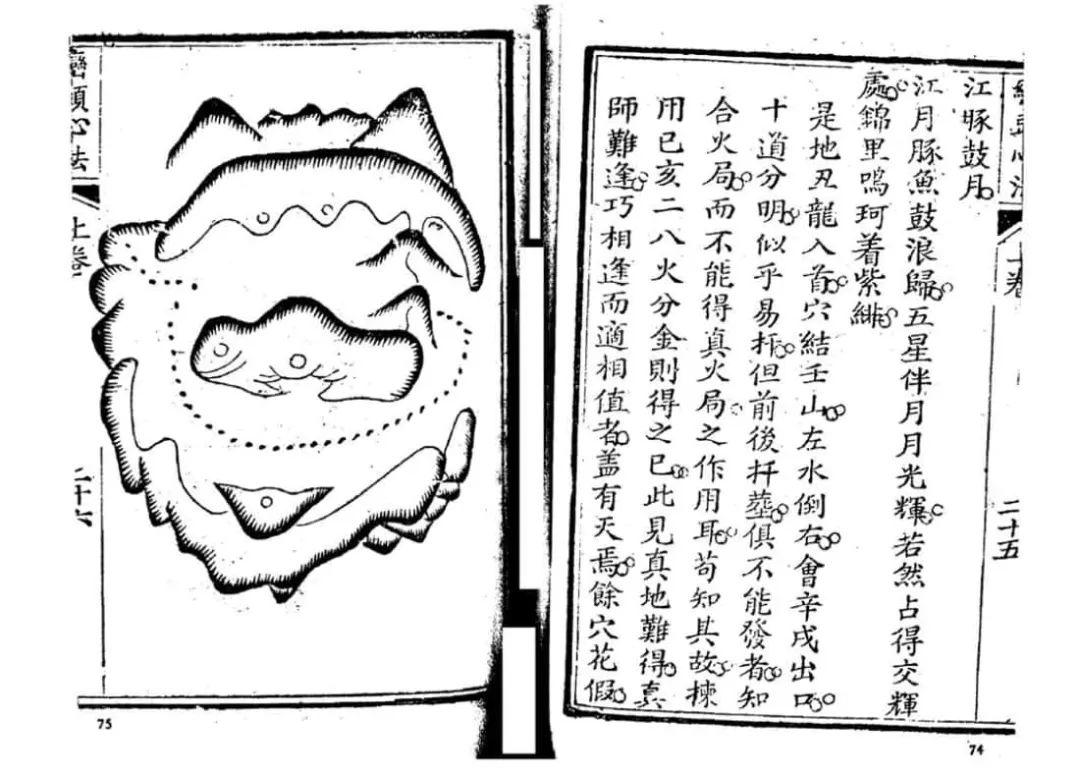 上卷
二十五
江豚鼓月。
江月豚魚鼓浪歸。五星伴月月光輝。若然占得交輝
處。錦里鳴珂着紫緋。
是地丑龍入首。穴結壬山。左水倒右。會辛戌出口。
十道分明。似乎易扦。但前後扦塟。俱不能發者。知
合火局。而不能得真火局。之作用耳。苟知其故。揀
用已亥二八火分金則得之已。此見真地難得。真
師難逢。巧相逢而適相值者。盖有天焉。餘穴花假。
74
巒頭心法
上卷
二十六
75